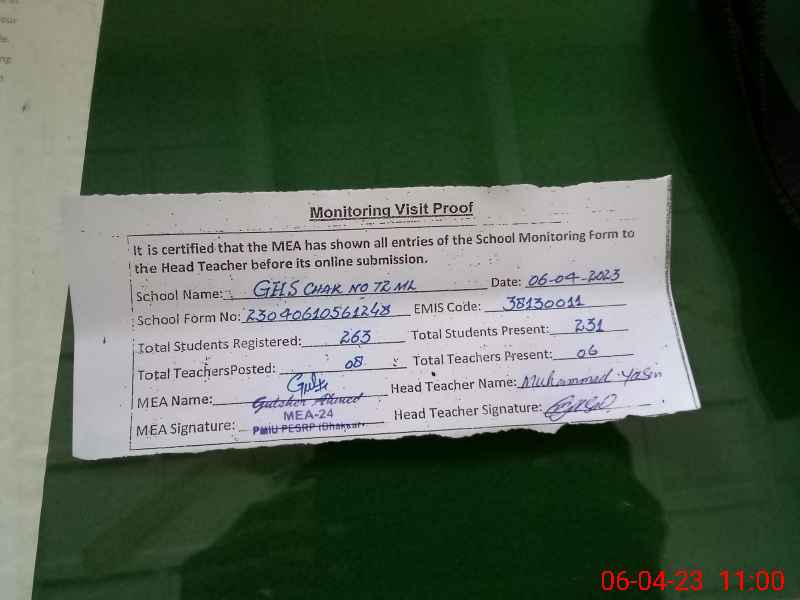 Monitoring Visit Proof
It is certified that the MEA has shown all entries of the School Monitoring Form to
the Head Teacher before its online submission.
School Name: GHS CHAK NO 72 ML Date: 06-04-2023
School Form No: 23040610561248 EMIS Code: 38130011
Total Students Registered: 263 Total Students Present: 231
Total TeachersPosted: 08 Total Teachers Present: 06
MEA Name: Gulsher Ahmed Head Teacher Name: Muhammad Yasin
MEA-24
MEA Signature: PMIU PESRP (Bhakkar) Head Teacher Signature:
06-04-23 11:00